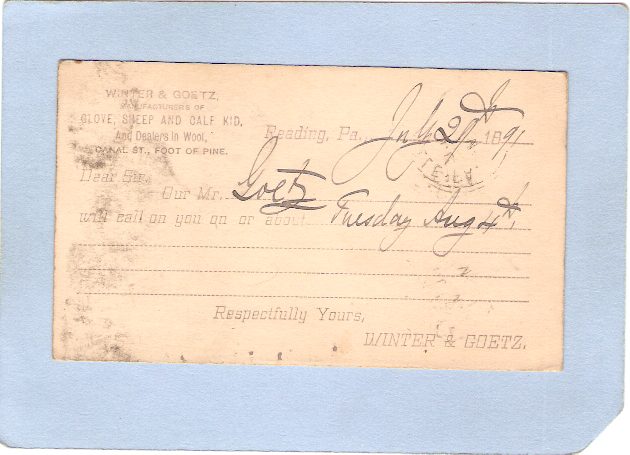 WINTER & GOETZ,
MANUFACTURERS OF
GLOVE, SHEEP AND CALF KID,
And Dealers in Wool,
CANAL ST., FOOT OF PINE.
Reading, Pa. July 29th 1891
Dear Sir:
Our Mr. Goetz
will call on you on or about Tuesday Aug 4th,
Respectfully Yours,
WINTER & GOETZ.